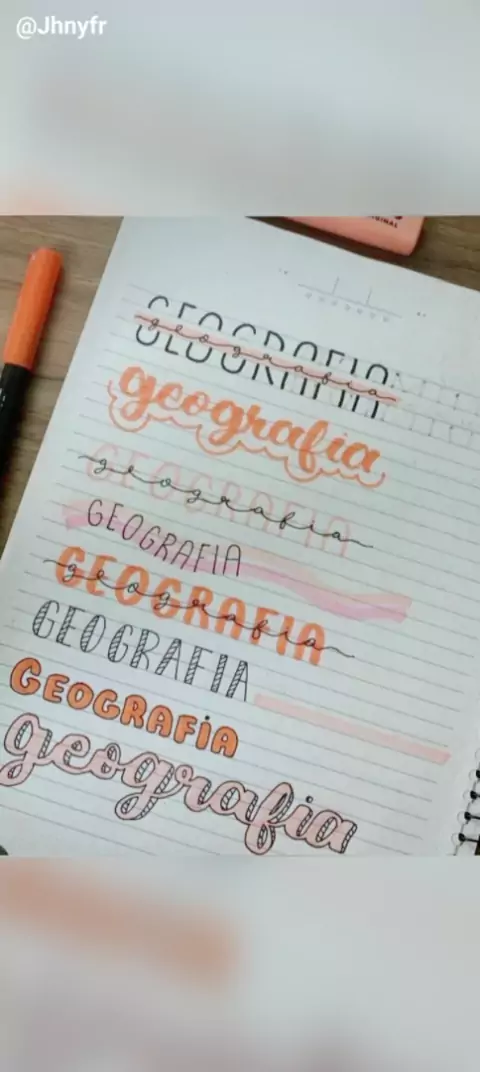 @Jhnyfr
GEOGRAFIA
geografia
geografia
GEOGRAFIA
geografia
GEOGRAFIA
GEOGRAFIA
geografia
GEOGRAFIA
GEOGRAFiA
geografia